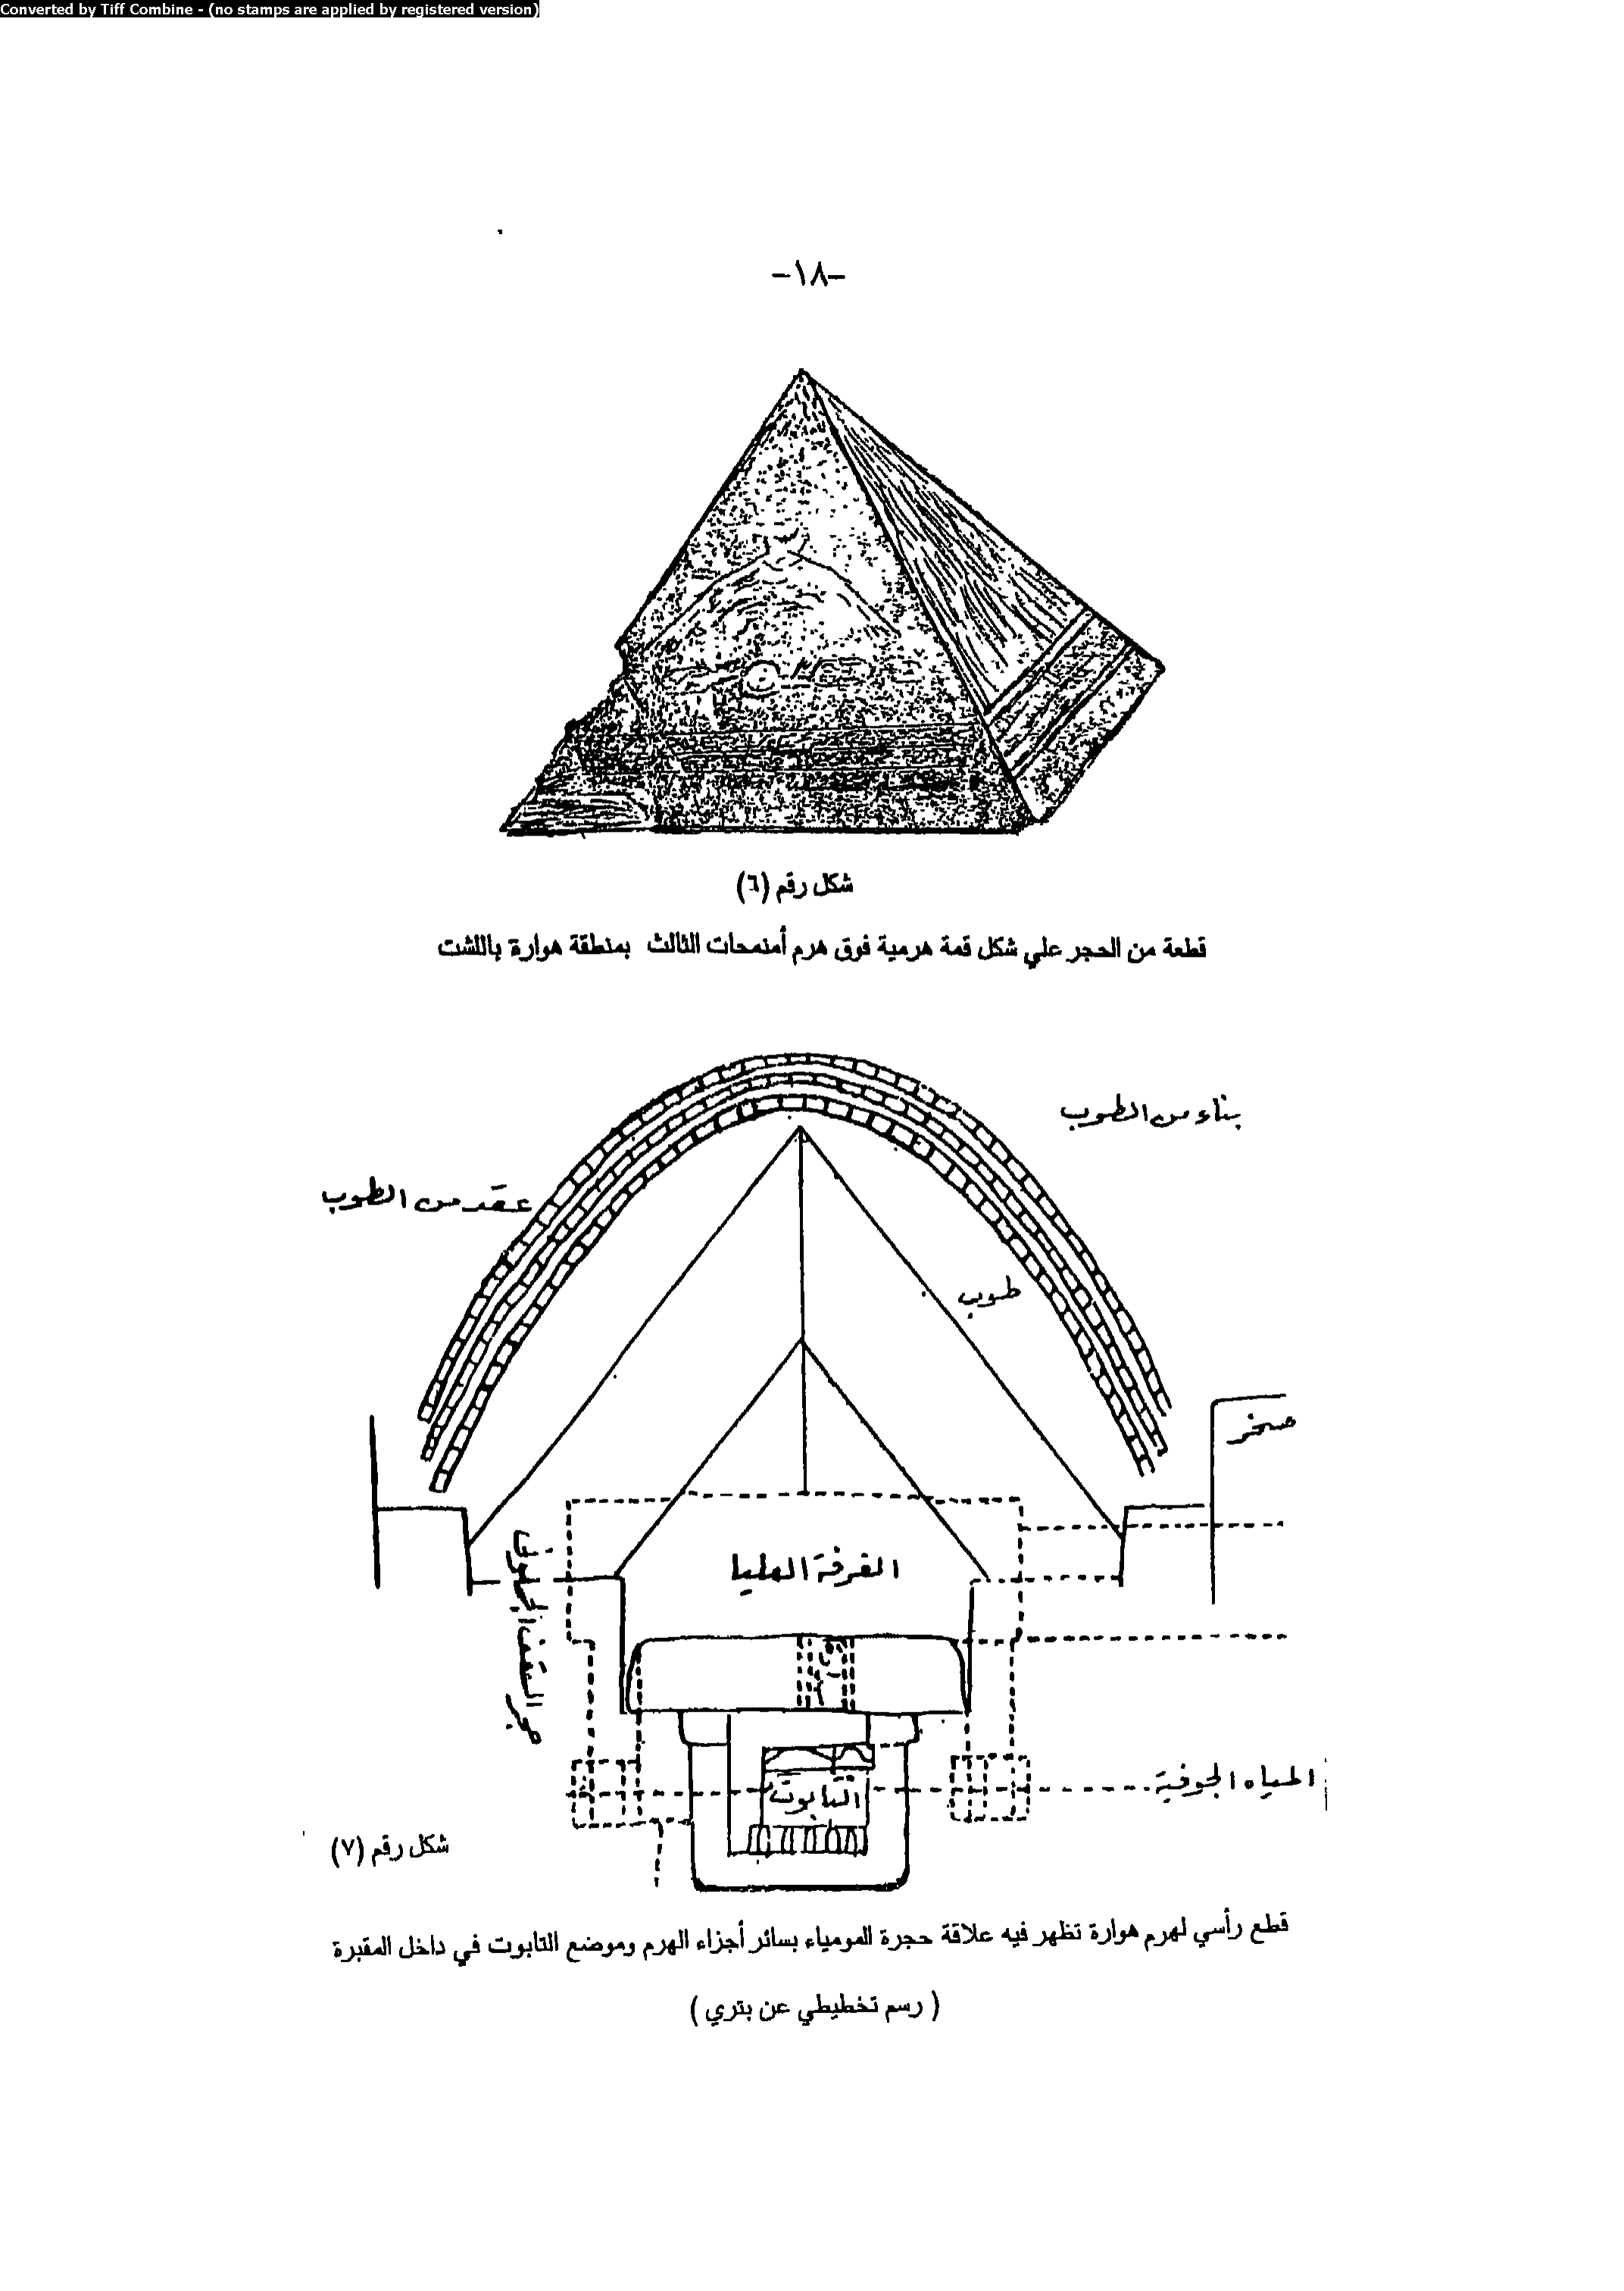 Converted by Tiff Combine - (no stamps are applied by registered version)
-١٨-
شكل رقم (٦)
قطعة من الحجر علي شكل قمة هرمية فوق هرم أمنمحات الثالث بمنطقة هوارة باللشت
بناء من الطوب
عقد من الطوب
طوب
صخر
الغرفة العليا
حجر السقف
المياه الجوفية
التابوت
شكل رقم (٧)
قطع رأسي لهرم هوارة تظهر فيه علاقة حجرة المومياء بسائر أجزاء الهرم وموضع التابوت في داخل المقبرة
( رسم تخطيطي عن بتري )